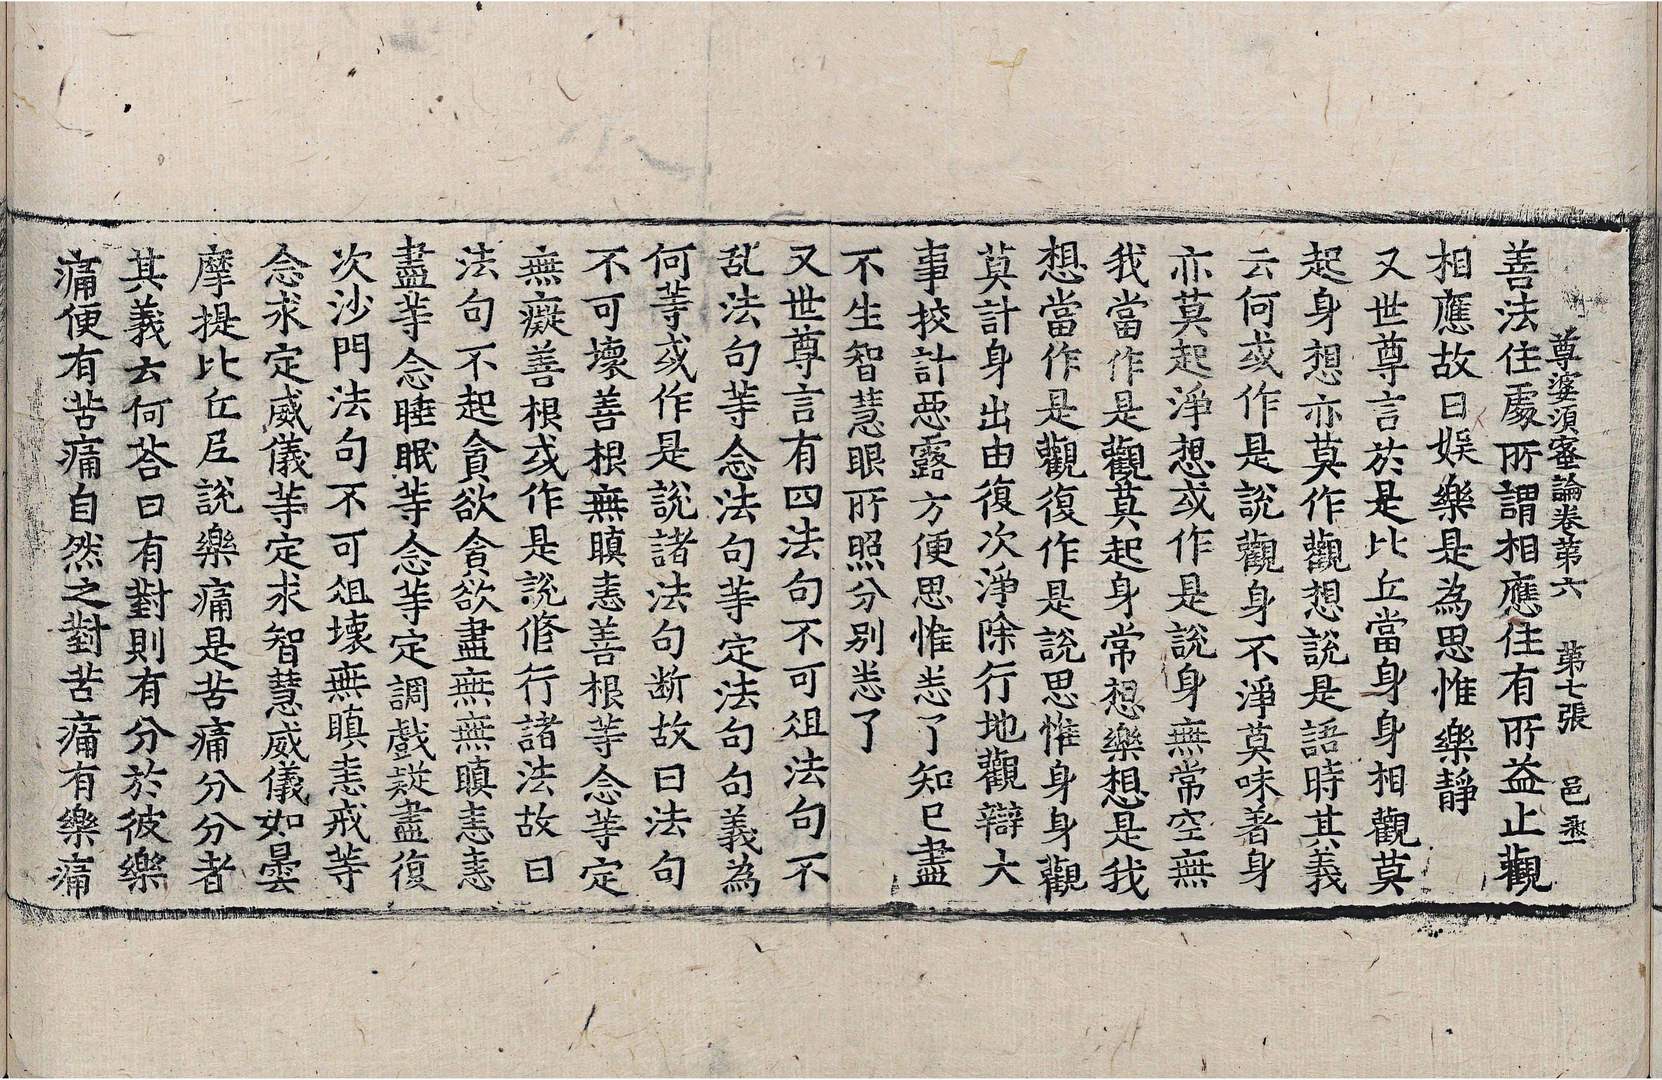 尊婆須蜜論卷第六 第七張 邑
善法住處所謂相應住有所益止觀
相應故曰娛樂是為思惟樂靜
又世尊言於是比丘當身身相觀莫
起身想亦莫作觀想說是語時其義
云何或作是說觀身不淨莫味著身
亦莫起淨想或作是說身無常空無
我當作是觀莫起身常想樂想是我
想當作是觀復作是說思惟身身觀
莫計身出由復次淨除行地觀辯大
事挍計惡露方便思惟悉了知已盡
不生智慧眼所照分別悉了
又世尊言有四法句不可俎法句不
亂法句等念法句等定法句句義為
何等或作是說諸法句断故曰法句
不可壞善根無瞋恚善根等念等定
無癡善根或作是說脩行諸法故曰
法句不起貪欲貪欲盡無無瞋恚恚
盡等念睡眠等念等定調戲疑盡復
次沙門法句不可俎壞無瞋恚戒等
念求定威儀等定求智慧威儀如曇
摩提比丘尼說樂痛是苦痛分分者
其義云何荅曰有對則有分於彼樂
痛便有苦痛自然之對苦痛有樂痛